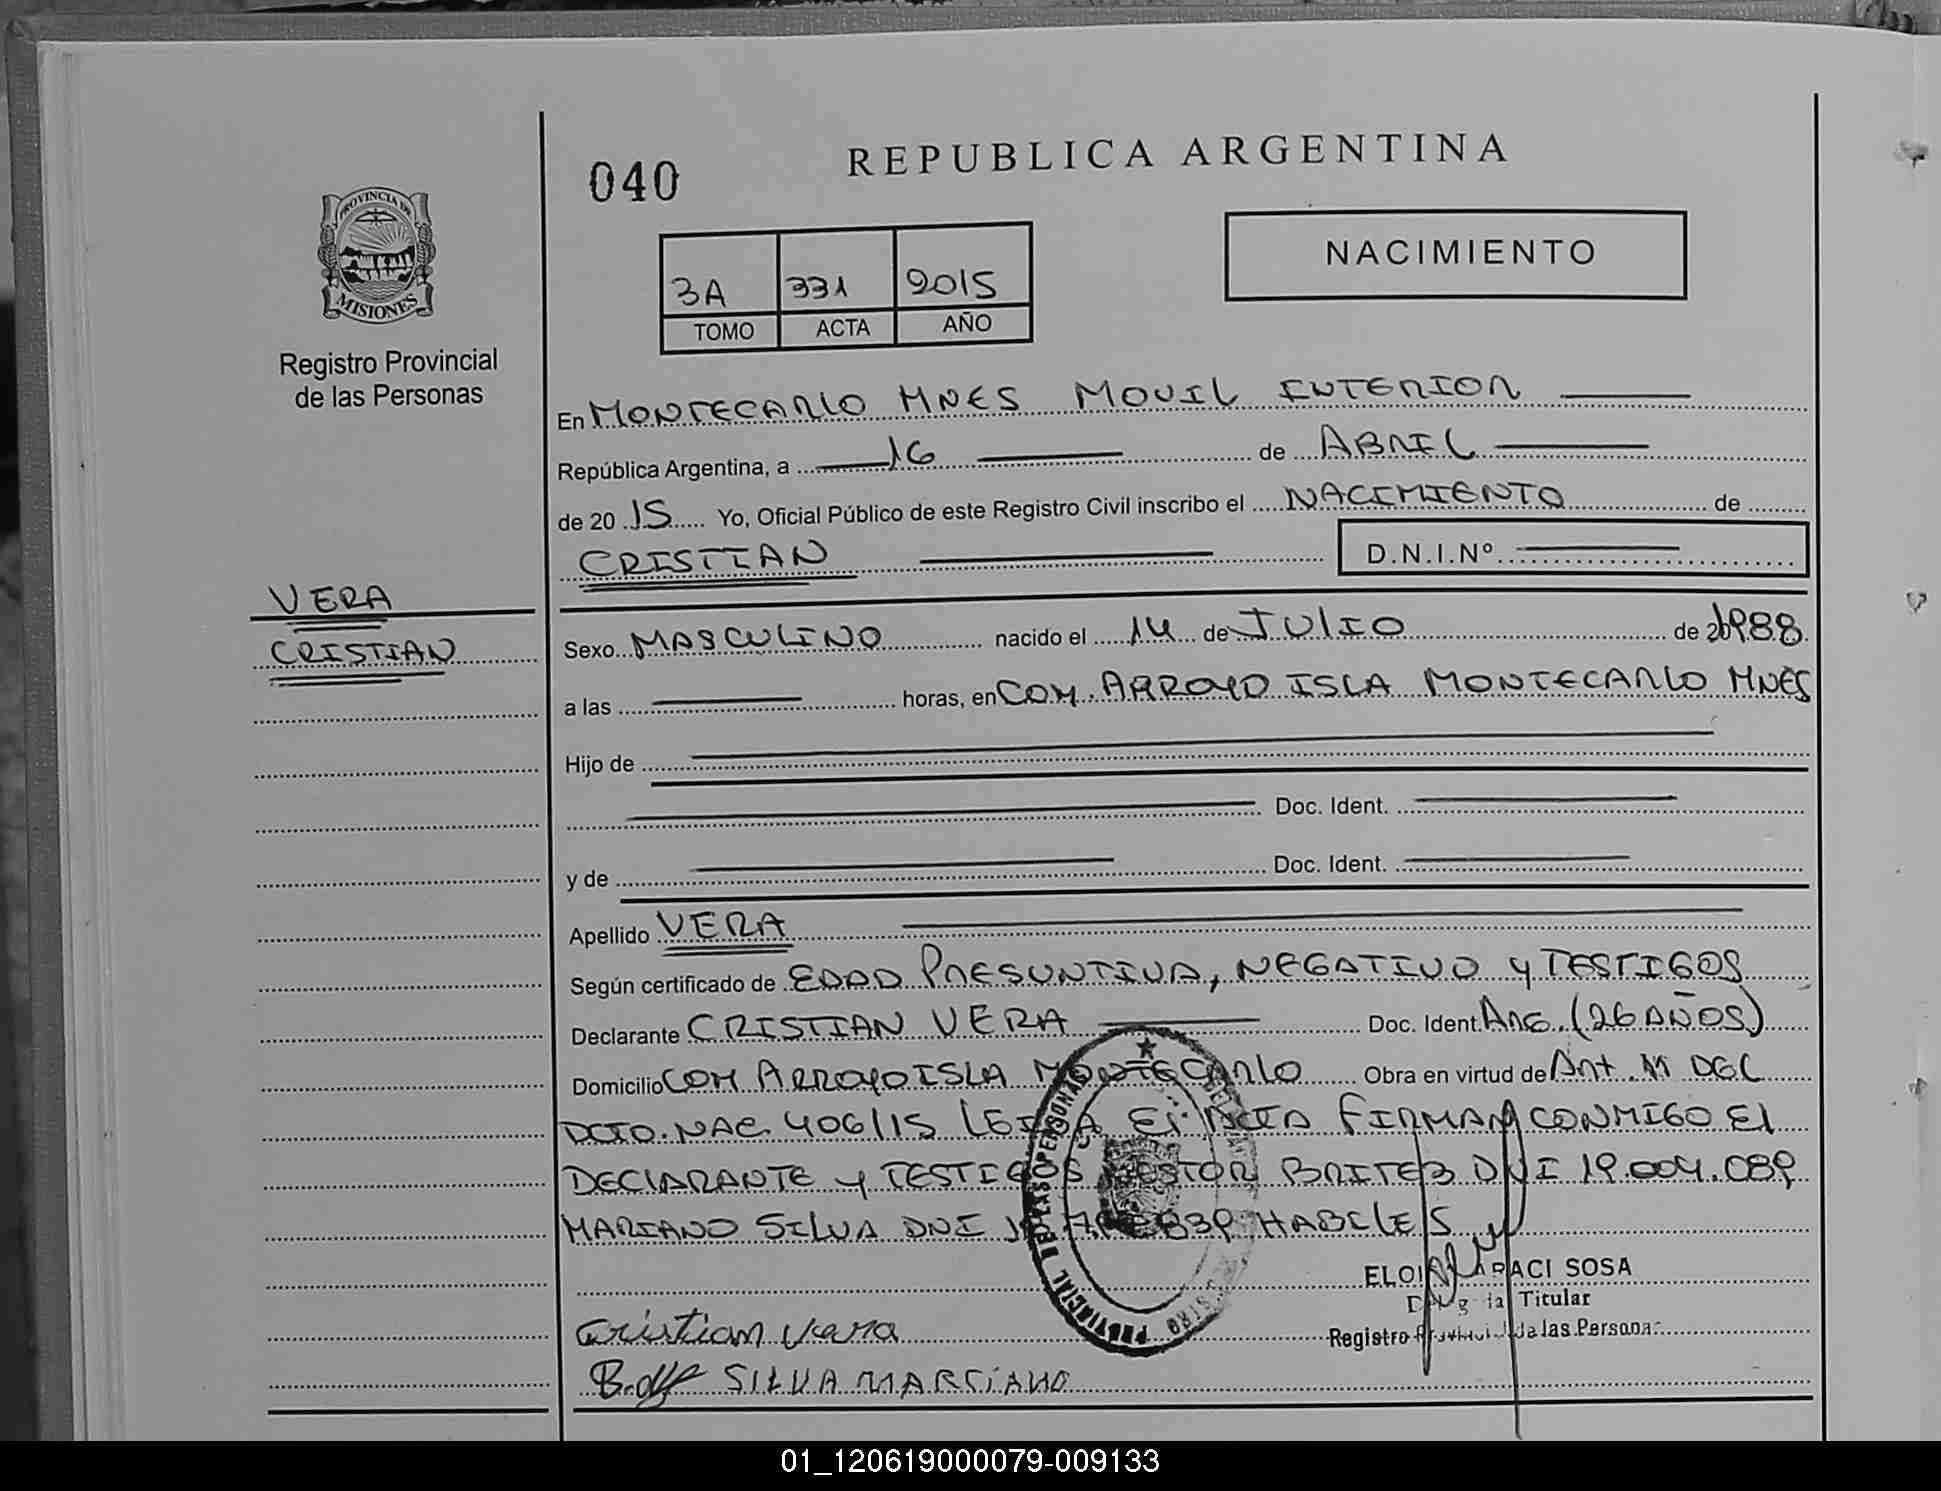 REPUBLICA ARGENTINA
040
PROVINCIA DE
MISIONES
Registro Provincial
de las Personas
NACIMIENTO
3A 331 2015
TOMO ACTA AÑO
En MONTECARLO MNES MOVIL INTERIOR
República Argentina, a 16 de ABRIL
de 20 15 Yo, Oficial Público de este Registro Civil inscribo el NACIMIENTO de
CRISTIAN D.N.I.Nº
VERA
CRISTIAN
Sexo MASCULINO nacido el 14 de JULIO de 1988
a las horas, en COM. ARROYO ISLA MONTECARLO MNES
Hijo de
Doc. Ident.
y de Doc. Ident.
Apellido VERA
Según certificado de EDAD PRESUNTIVA, NEGATIVO y TESTIGOS
Declarante CRISTIAN VERA Doc. Ident. ARG. (26 AÑOS)
Domicilio COM ARROYO ISLA MONTECARLO Obra en virtud de Art. 11 DGC
DCTO. NAC. 406/15 LEIDA El ACTA FIRMAN CONMIGO El
DECLARANTE y TESTIGOS NESTOR BRITEZ DNI 19.004.089
MARIANO SILVA DNI HABILES
ELOI SOSA
Titular
Registro de las Personas
Cristian vera
SILVA MARCIANO
01_120619000079-009133